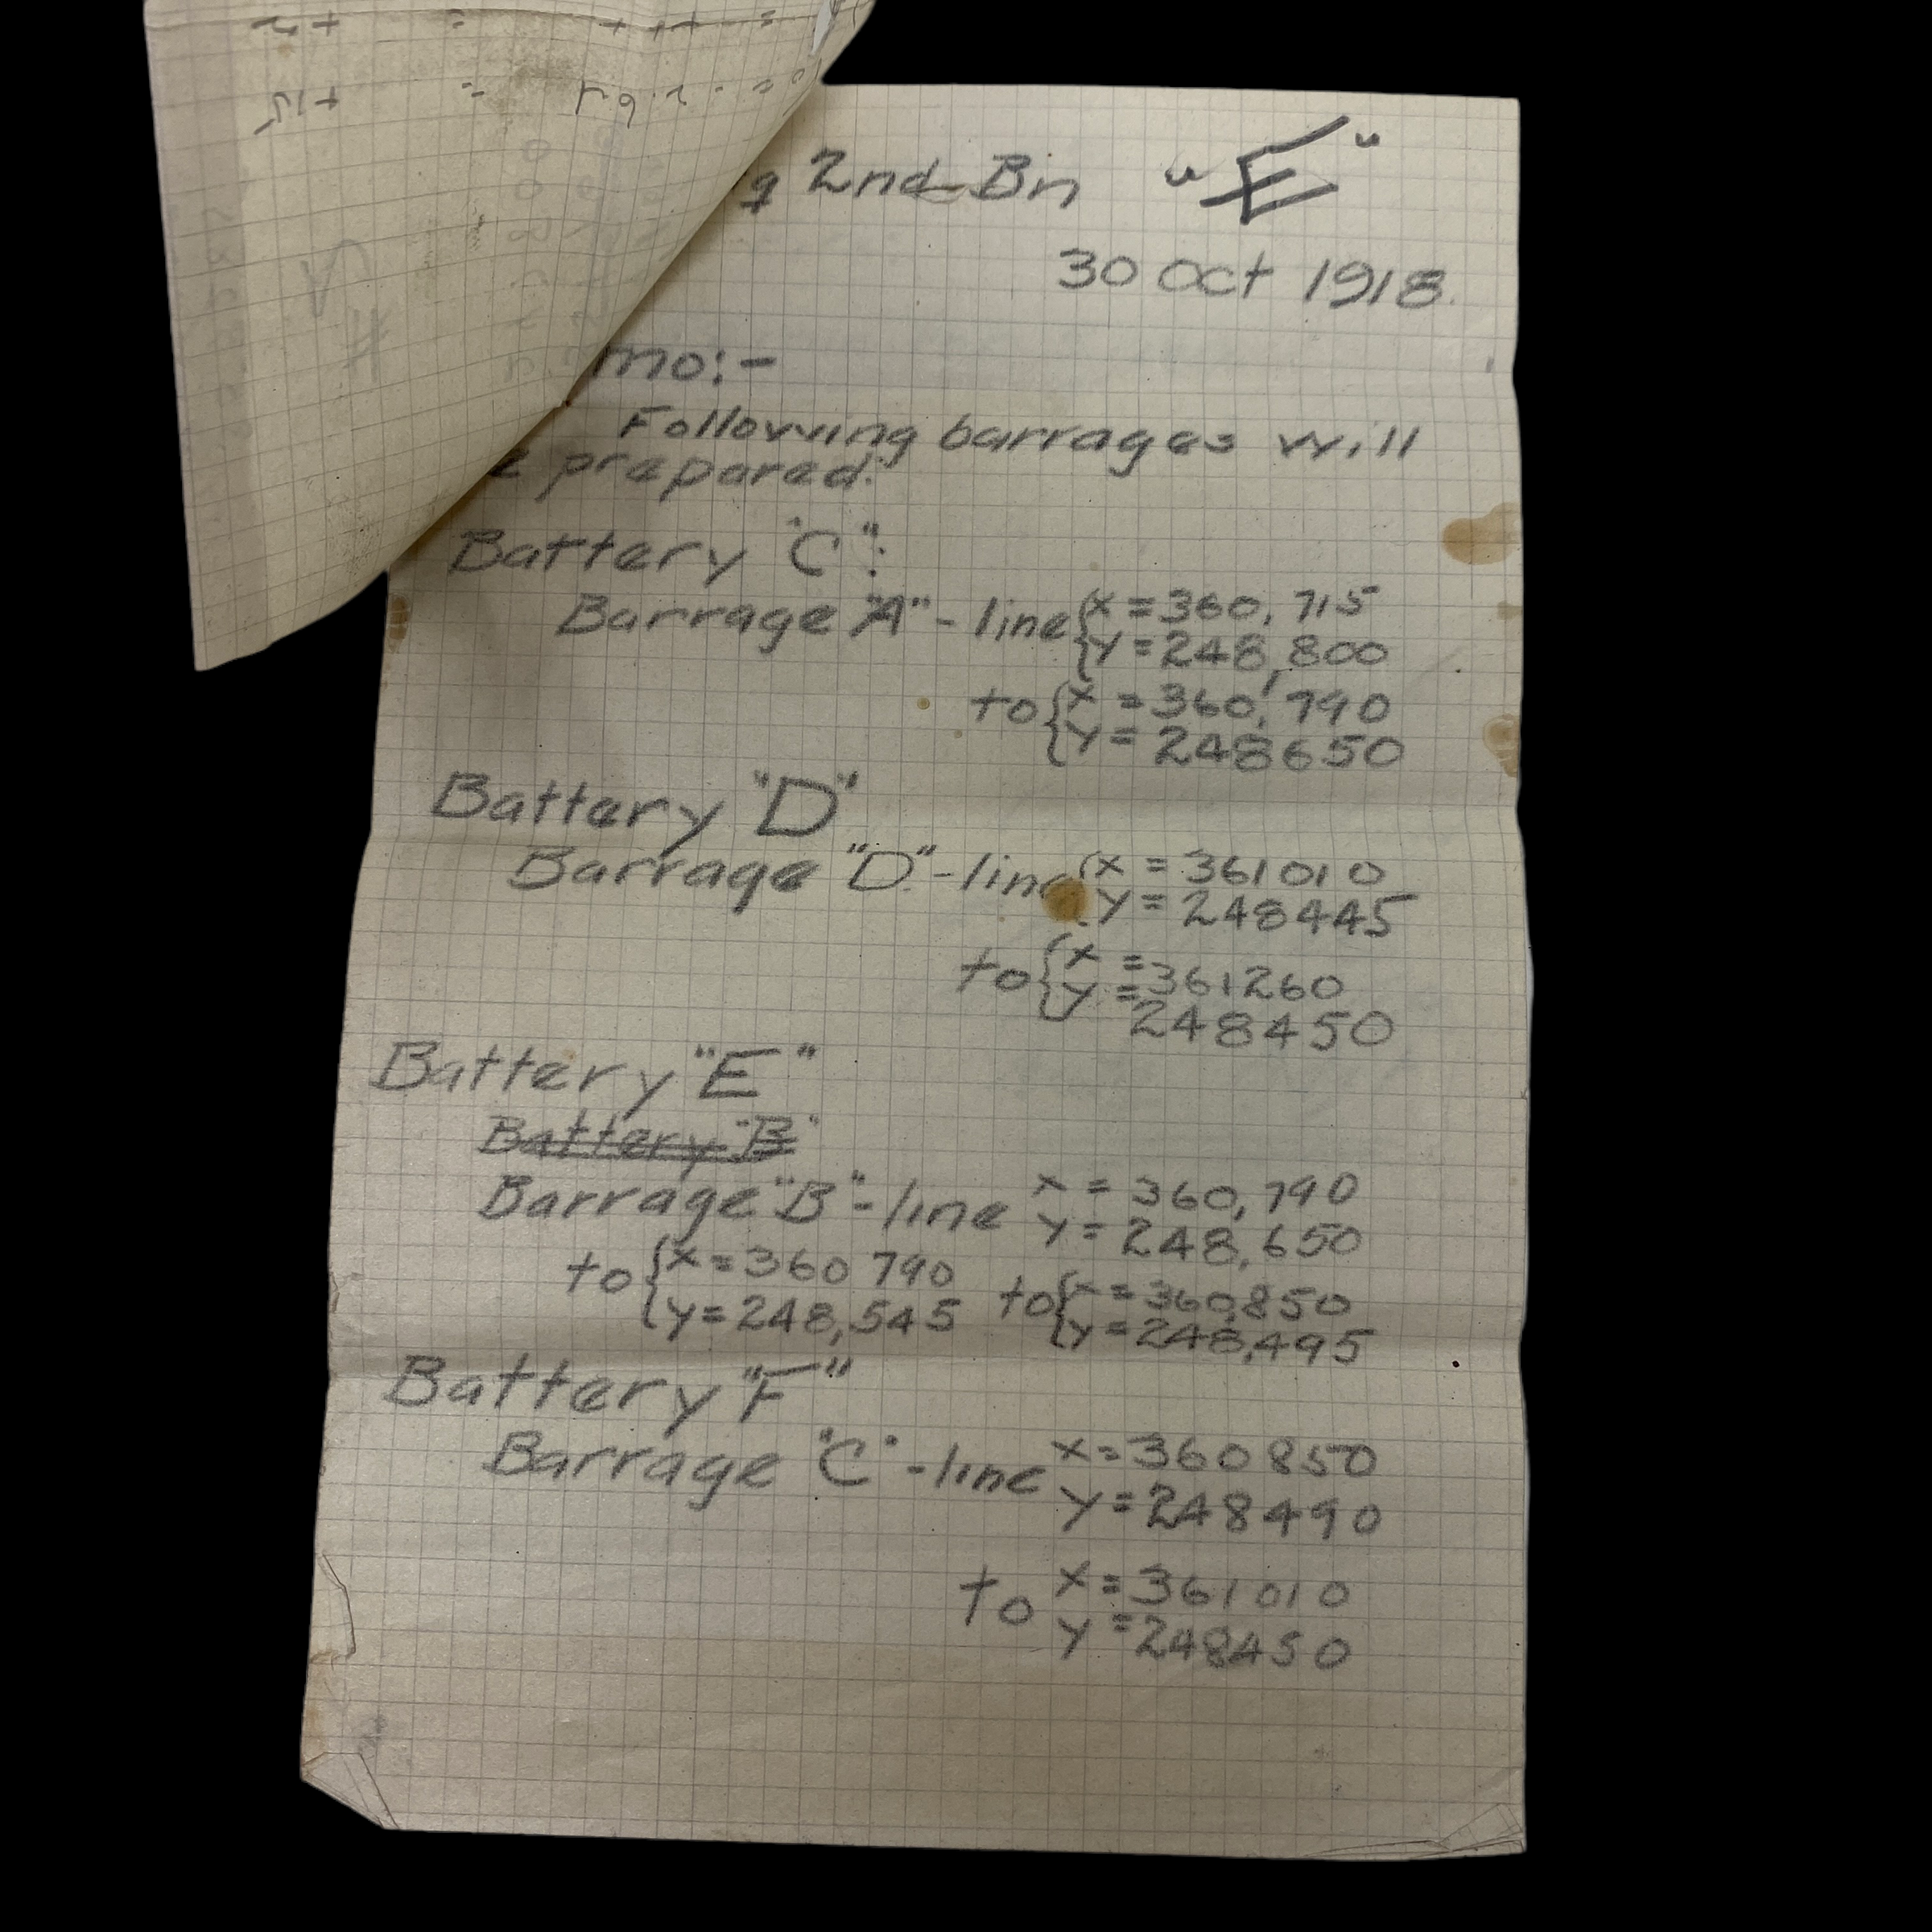 2nd Bn "E"
30 Oct 1918.
mo:-
Following barrages will
e prepared:
Battery "C":
Barrage "A" - line { x = 360,715
y = 248,800
to { x = 360,790
y = 248650
Battery "D"
Barrage "D" - line { x = 361010
y = 248445
to { x = 361260
y = 248450
Battery "E"
Battery "B"
Barrage "B" - line x = 360,790
y = 248,650
to { x = 360 790 to { x = 360,850
y = 248,545 y = 248,495
Battery "F"
Barrage "C" - line x = 360850
y = 248490
to x = 361010
y = 248450